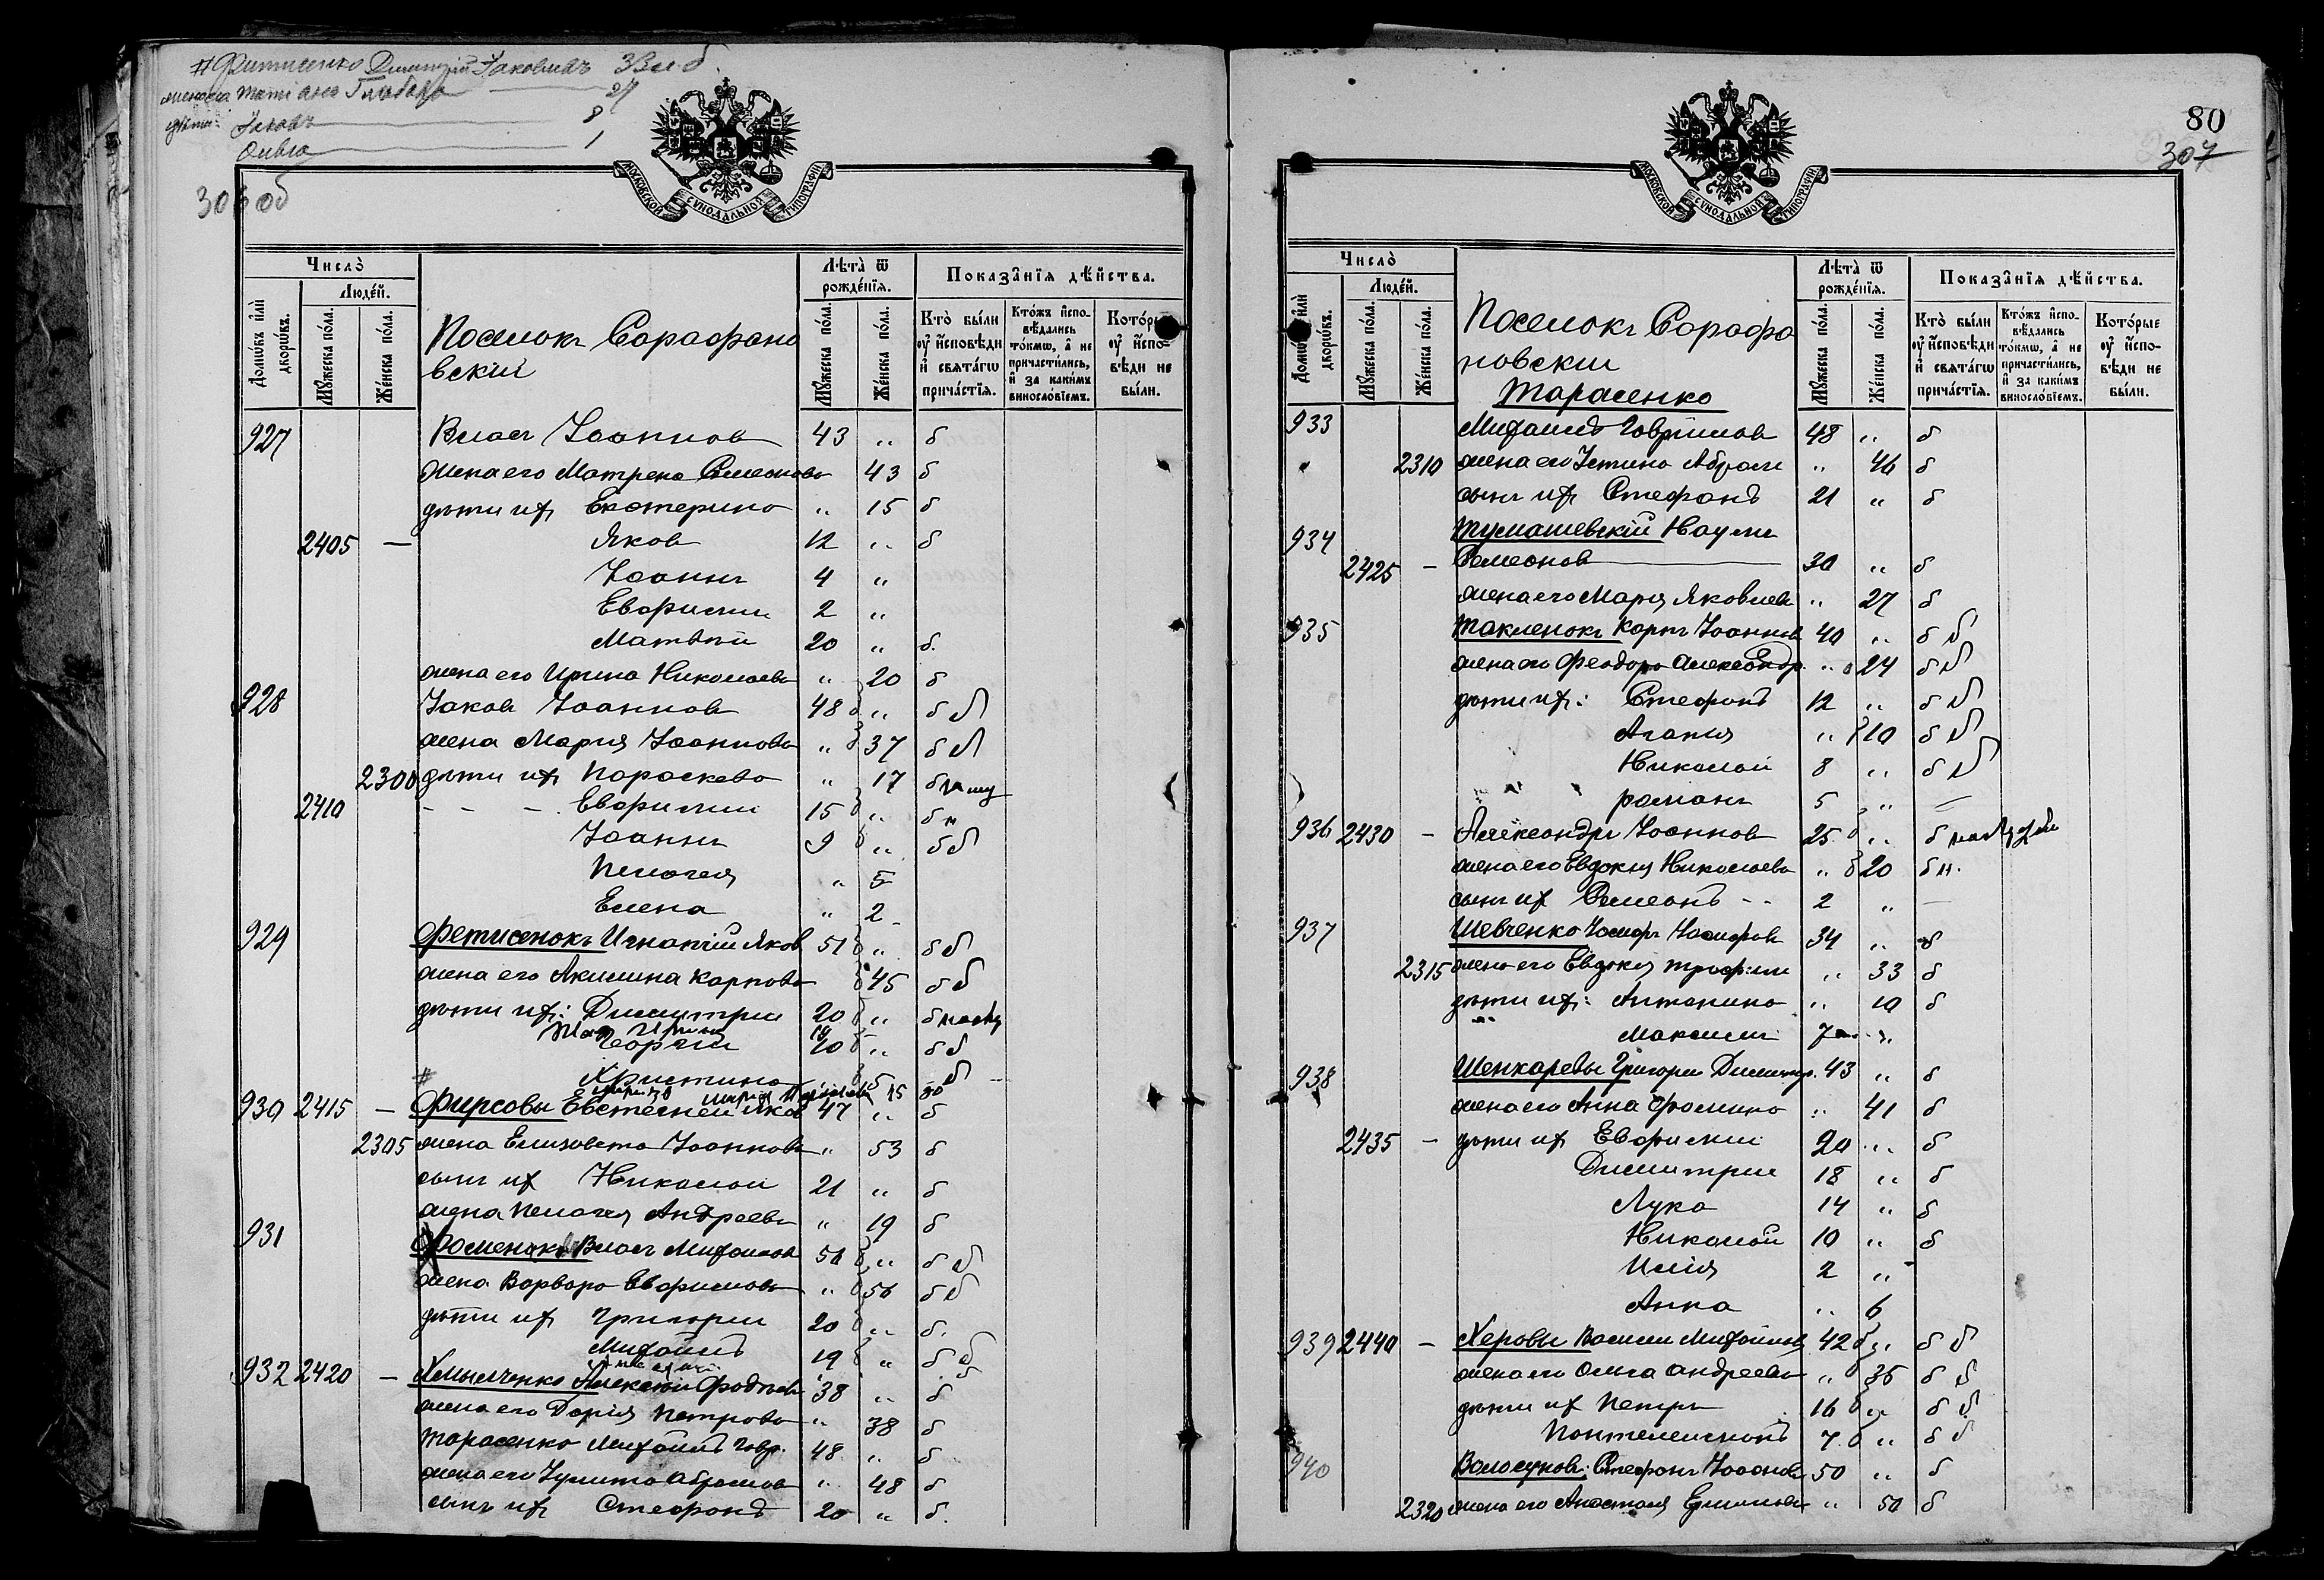 Дмитрій Яковлевъ
27
8
Ольга 1
306 об
МОСКОВСКОЙ СѴНОДАЛЬНОЙ ТИПОГРАФІИ
Число̀
Людéй.
Домѡ́въ и҆лѝ дворѡ́въ.
Мꙋ́жеска по́ла.
Же́нска по́ла.
Поселокъ Сарафано
вскій
Лѣта̀ ѿ рожде́нїѧ.
Мꙋ́жеска по́ла.
Же́нска по́ла.
Показа̑нїѧ дѣ́йства.
Кто̀ бы́ли оу҆ и҆сповѣди и҆ свѧта́гѡ прича́стїѧ.
Кто́жъ и҆спо- вѣдались то́кмѡ, а҆ не причасти́лись, и҆ за каки́мъ винословїемъ.
Кото́рые оу҆ и҆спо- вѣди не бы́ли.
927 Власъ Іоанновъ 43 " б
жена его Матрена Симеонова 43 б
дѣти ихъ Екатерина " 15 б
2405 — Яковъ 12 " б
Іоаннъ 4 "
Евфимій 2 "
Матвѣй 20 " б.
жена его Ирина Николаева " 20 б
928 Іаковъ Іоанновъ 48 " б б
жена Марія Іоаннова " 37 б б
2300 дѣти ихъ Параскева " 17 б
2410 - - - Евфимій 15 " б н
Іоаннъ 9 " б б
Пелагея " 5
Елена " 2 -
929 Фетисенокъ Игнатій Яков 51 " б б
жена его Акилина Карпова 45 б б
дѣти ихъ: Димитрій 20 " б
Георгій 10 " б б
# Христина 5 б
930 2415 — Фирсовы Евстегней Яков 47 " б
2305 жена Елизавета Іоаннова " 53 б
сынъ их Николай 21 " б
жена Пелагея Андреева " 19 б
931 Фоменокъ Власъ Михаилов 56 " б б
жена Варвара Евфимова " 56 б б
дѣти ихъ Григорій 20 " б.
Михаилъ 19 " б б
932 2420 — Хмыльченко Алексій 38 " б
жена его Дарія Петрова " 38 б
Тарасенко Михаилъ Гавр. 48 " б
жена его Абрамова " 48 б
сынъ ихъ Стефанъ 20 " б.
80
307
МОСКОВСКОЙ СѴНОДАЛЬНОЙ ТИПОГРАФІИ
Число̀
Людéй.
Домѡ́въ и҆лѝ дворѡ́въ.
Мꙋ́жеска по́ла.
Же́нска по́ла.
Поселокъ Сарафа
новскій
Тарасенко
Лѣта̀ ѿ рожде́нїѧ.
Мꙋ́жеска по́ла.
Же́нска по́ла.
Показа̑нїѧ дѣ́йства.
Кто̀ бы́ли оу҆ и҆сповѣди и҆ свѧта́гѡ прича́стїѧ.
Кто́жъ и҆спо- вѣдались то́кмѡ, а҆ не причасти́лись, и҆ за каки́мъ винословїемъ.
Кото́рые оу҆ и҆спо- вѣди не бы́ли.
933 Михаилъ Гавріиловъ 48 " б
2310 жена его Устина Абрам " 46 б
сынъ ихъ Стефанъ 21 " б
934 Тумашевскій Наумъ
2425 — Симеонов 30 " б
жена его Марія Яковлева " 27 б
935 Такменокъ Карпъ Іоаннов 40 " б б
жена его Феодора Александр. " 24 б б
дѣти ихъ: Стефанъ 12 " б б
Агапія " 10 б б
Николай 8 " б б
Романъ 5 " —
936 2430 — Александръ Іоаннов 25 " б
жена его Евдокія Николаева " 20 б н.
сынъ их Симеонъ - - 2 " —
937 Шевченко Іосифъ Іосифов 34 " б
2315 жена его Евдокія Трофим " 33 б
дѣти ихъ: Антонина " 10 б
Максимъ 7 "
938 Шенкаревы Григорій Димитр. 43 " б
жена его Анна Фомина " 41 б
2435 — дѣти ихъ Евфимій 20 " б
Димитрій 18 " б
Лука 14 " б
Николай 10 " б
Илія 2 "
Анна " 6
939 2440 — Херовы Василій Михайлов 42 " б б
жена его Ольга Андреева " 36 б б
дѣти их Петръ 16 " б б
Пантелеимонъ 7 " б б
940 Волосунов: Стефанъ Іоаннов 50 " б
2320 жена его Анастасія " 50 б